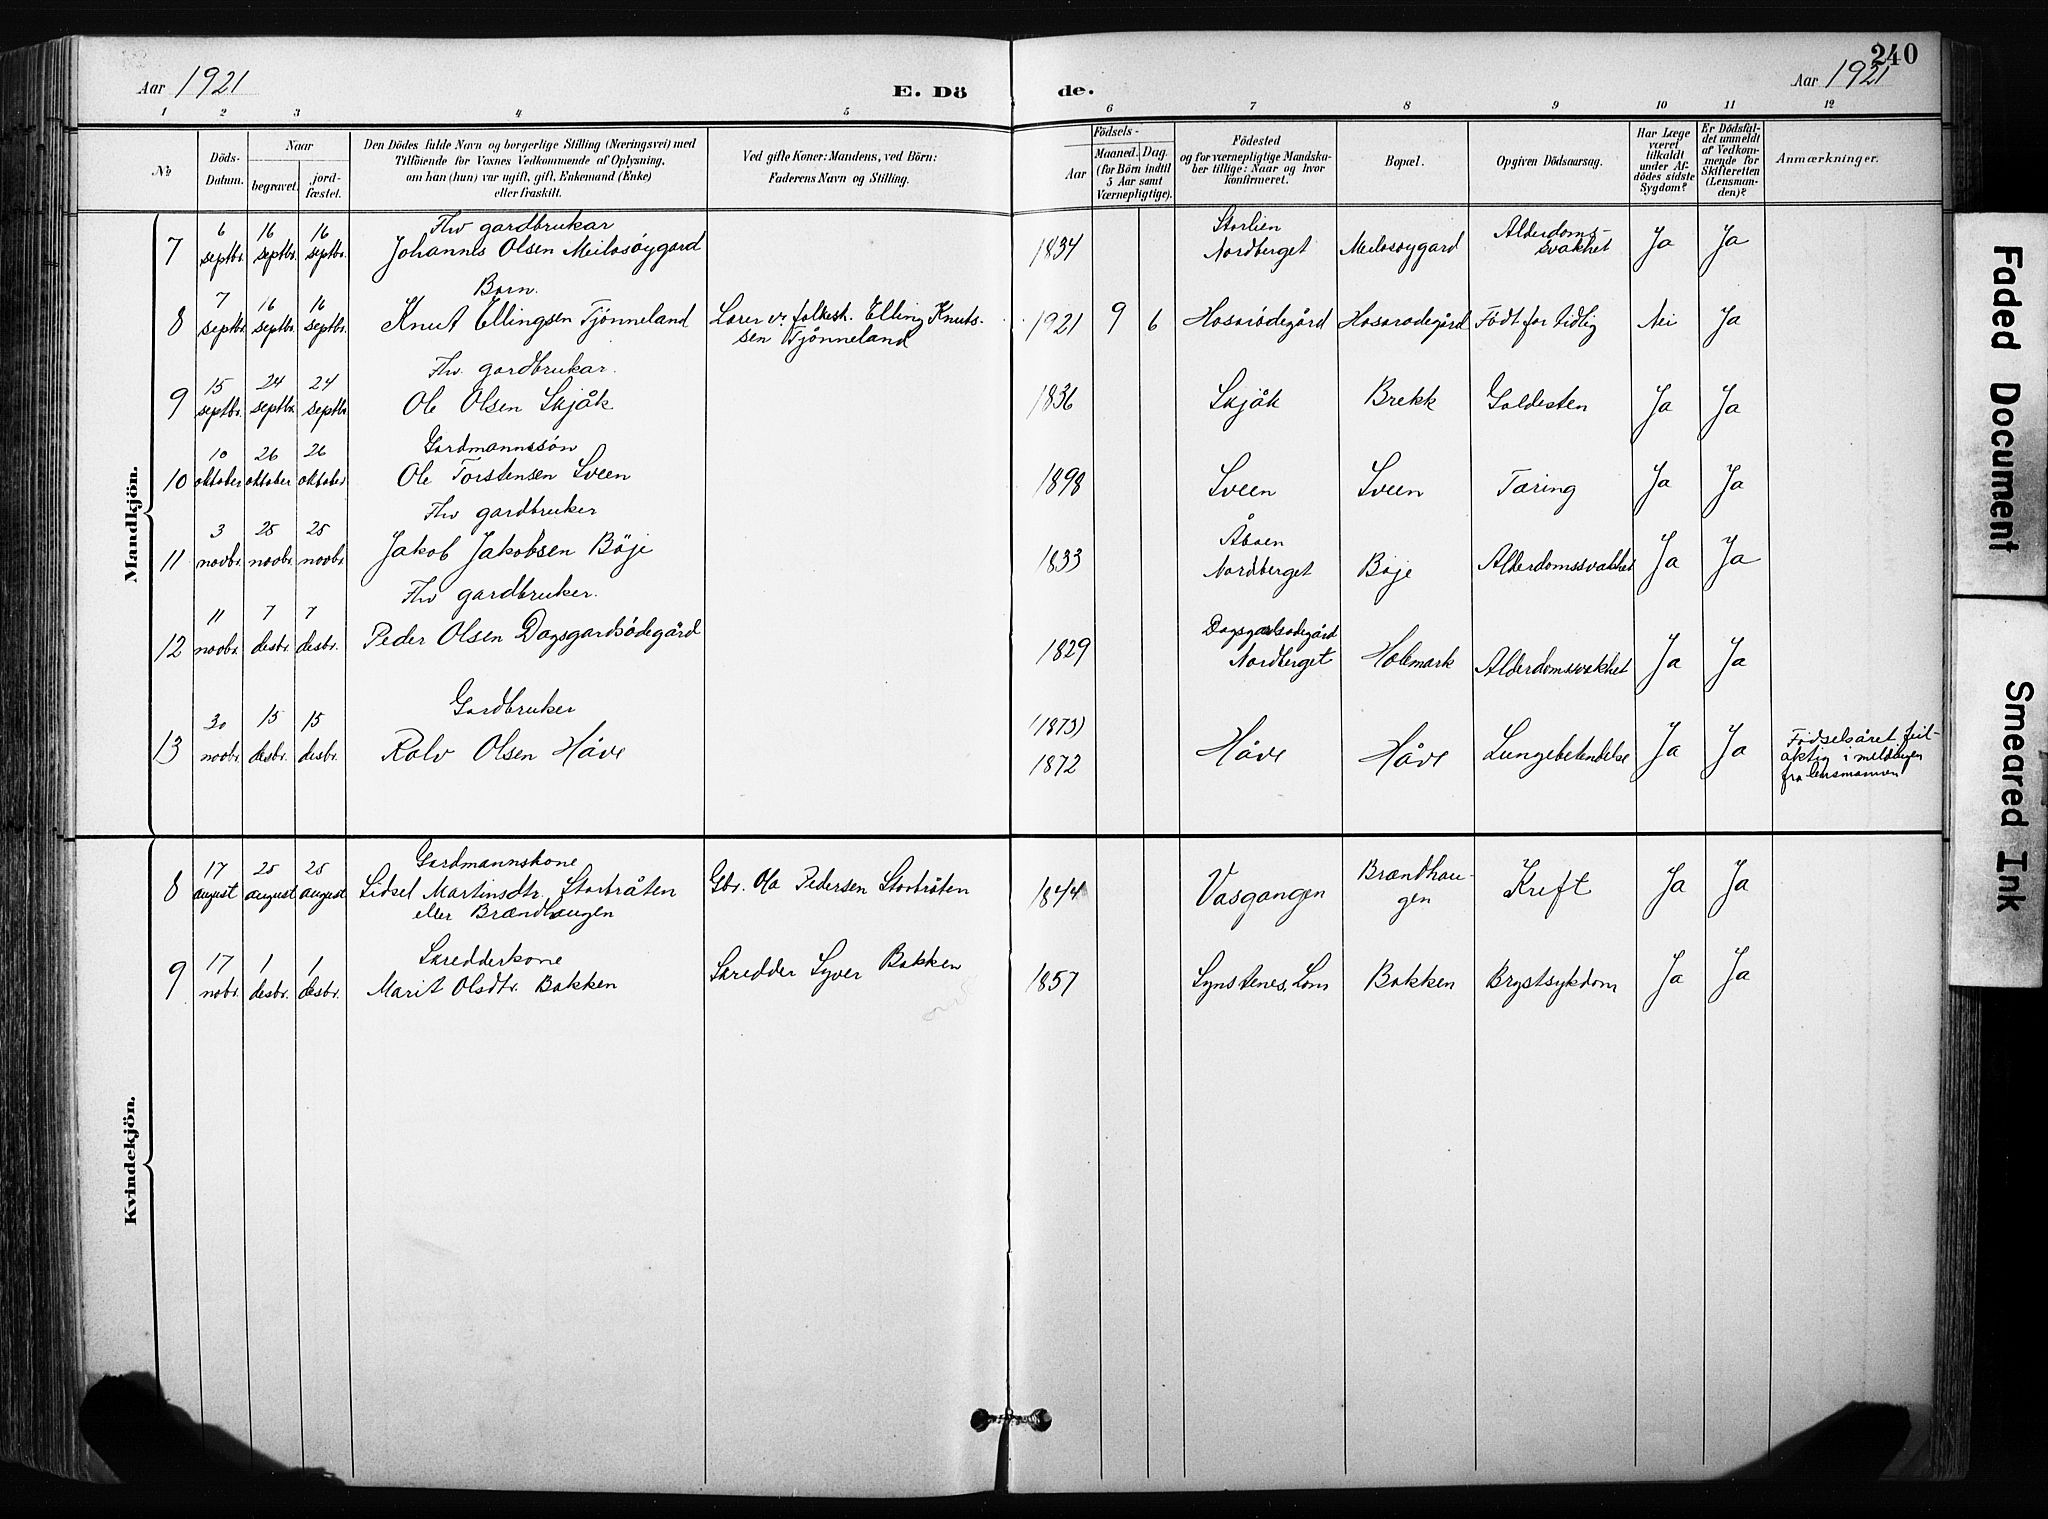 240
Aar 1921
E. Dö
de.
Aar 1921
1 2 3 4 5 6 7 8 9 10 11 12
№
Döds-
Datum.
Naar
begravet.
jord-
fæstet.
Den Dödes fulde Navn og borgerlige Stilling (Næringsvei) med
Tilföiende for Voxnes Vedkommende af Oplysning,
om han (hun) var ugift, gift, Enkemand (Enke)
eller fraskilt.
Ved gifte Koner: Mandens, ved Börn:
Faderens Navn og Stilling.
Födsels-
Aar
Maaned. Dag.
(for Börn indtil
5 Aar samt
Værnepligtige).
Födested
og for værnepligtige Mandska-
ber tillige: Naar og hvor
konfirmeret.
Bopæl.
Opgiven Dödsaarsag.
Har Læge
været
tilkaldt
under Af-
dödes sidste
Sygdom?
Er Dödsfal-
det anmeldt
af Vedkom-
mende for
Skifteretten
(Lensman-
den)?
Anmærkninger.
Mandkjön.
6 16 16 Fhv gardbrukar Storlien Alderdoms-
7 septbr. septbr. septbr. Johannes Olsen Meilosøygard 1834 Nordberget Meilosøygard svakhet Ja Ja
7 16 16 Barn.
8 septbr. septbr. septbr. Knut Ellingsen Tjönneland Lærer v. folkesk. Elling Knuts- 1921 9 6 Födt for tidlig Nei Ja
sen Tjönneland
15 24 24 Fhv. gardbrukar.
9 septbr. septbr. septbr. Ole Olsen Skjåk 1836 Skjåk Brekk Galdesten Ja Ja
10 26 26 Gardmannssön
10 oktober oktober oktober Ole Torstensen Sveen 1898 Sveen Sveen Tæring Ja Ja
3 25 25 Fhv gardbruker Åsoen
11 novbr. novbr. novbr. Jakob Jakobsen Böje 1833 Nordberget Böje Alderdomssvakhet Ja Ja
11 7 7 Fhv gardbruker.
12 novbr. desbr. desbr. Peder Olsen Dagsgardsödegård 1829 Dagsgardsødegård
Nordberget Holemark Alderdomssvakhet Ja Ja
30 15 15 Gardbruker (1873)
13 novbr. desbr. desbr. Rolv Olsen Håve 1872 Håve Håve Lungebetendelse Ja Ja Födselsåret feil-
aktig i meldingen
fra lensmannen
Kvindekjön.
17 25 25 Gardmannskone
8 august august august Sidsel Martinsdtr. Storbråten Gbr. Ola Pedersen Storbråten 1844 Vasgangen Brændhau-
gen Kreft Ja Ja
eller Brændhaugen
17 1 1 Skredderkone
9 nobr. desbr. desbr. Marit Olsdtr. Bakken Skredder Syver Bakken 1857 Synstenes, Lom Bakken Brystsykdom Ja Ja
Faded Document
Smeared Ink